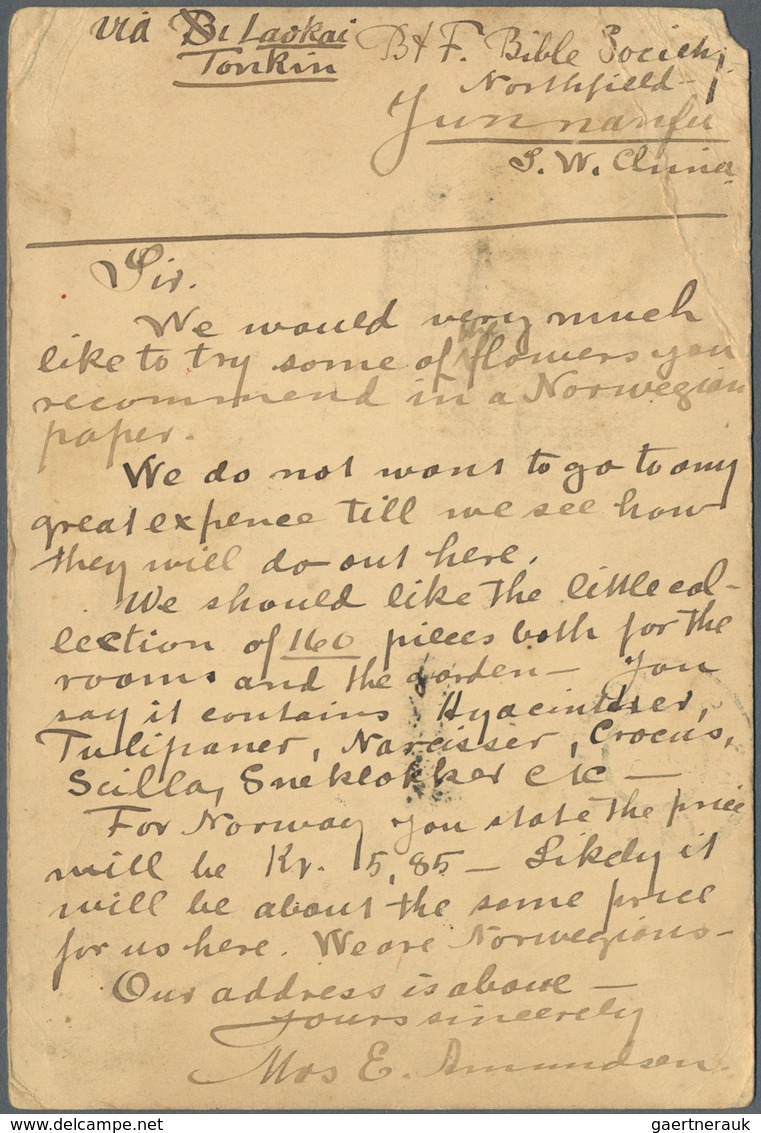 via Laokai
Tonkin
B & F. Bible Society,
Northfield
Yunnanfu
S. W. China
Sir.
We would very much
like to try some of flowers you
recommend in a Norwegian
paper.
We do not want to go to any
great expence till we see how
they will do out here.
We should like the little col-
lection of 160 pieces both for the
rooms and the garden — You
say it contains Hyacinther,
Tulipaner, Narcisser, Crocus,
Scilla, Sneklokker etc —
For Norway you state the price
will be Kr. 5,85 — Likely it
will be about the same price
for us here. We are Norwegians —
Our address is above —
Yours sincerely
Mrs E. Amundsen.
gaertnerauk